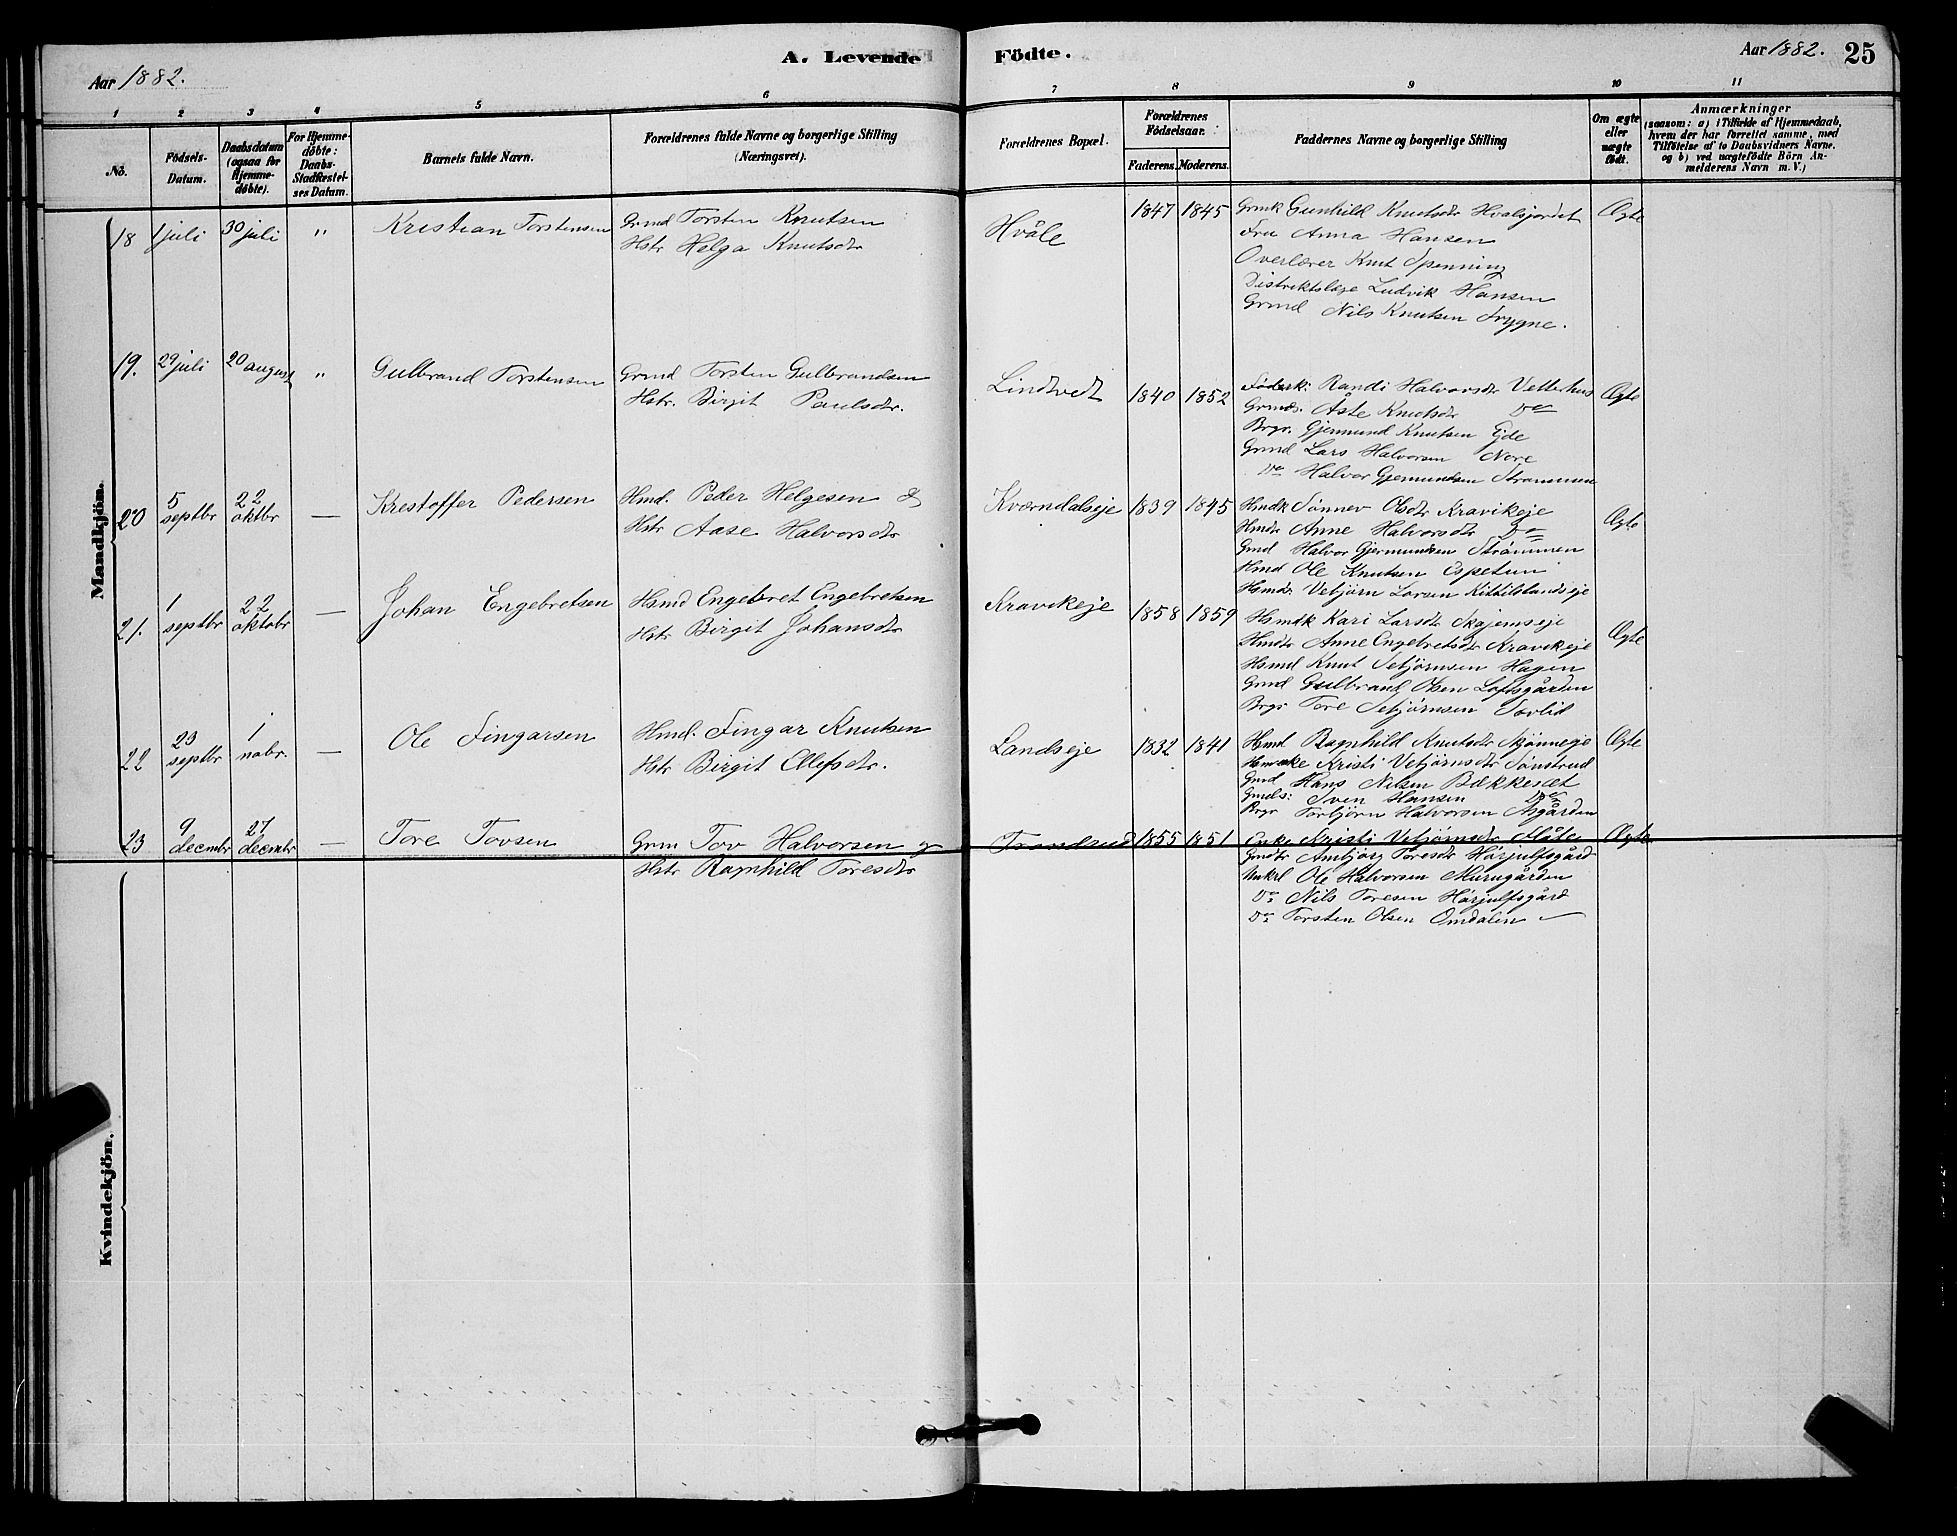 Aar 1882.
A. Levende Födte.
Aar 1882. 25
1 2 3 4 5 6 7 8 9 10 11
No.
Födsels-Datum.
Daabsdatum (ogsaa for Hjemmedøbte).
For Hjemmedøbte: Daabs-Stadfæstelses Datum.
Barnets fulde Navn.
Forældrenes fulde Navne og borgerlige Stilling (Næringsvei).
Forældrenes Bopæl.
Forældrenes Födselsaar.
Faderens. Moderens.
Faddernes Navne og borgerlige Stilling
Om ægte eller uægte født.
Anmærkninger
(saasom: a) i Tilfælde af Hjemmedaab, hvem der har forrettet samme, med Tilföielse af to Daabsvidners Navne, og b) ved uægtefödte Börn Anmelderens Navn m.V.)
Mandkjön.
18 1 juli 30 juli " Kristian Torstensen
Grmd Torsten Knutsen
Hstr Helga Knutsdtr
Hvåle 1847 1845
Grmk Gunhild Knutsdtr Hvalsjordet
Fru Anna Hansen
Overlærer Knut Spenning
Distriktslæge Ludvik Hansen
Grmd Nils Knutsen Frygne.
Ægte
19. 29 juli 20 august " Gulbrand Torstensen
Grmd Torsten Gulbrandsen
Hstr. Birgit Paulsdtr.
Lindtvedt 1840 1852
Randi Halvorsdtr Vetterhus
Grmds. Åste Knutsdtr Do
Brgr. Gjermund Knutsen Eide
Grmd Lars Halvorsen Nore
Do Halvor Gjermundsen Strammen
Ægte
20 5 septbr 22 oktbr — Krestoffer Pedersen
Hmd. Peder Helgesen &
Hstr Aase Halvorsdtr
Kværndalseje 1839 1845
Hmdk Sønnev Olsdtr Kravikeje
Hmdtr Anne Halvorsdtr Do
Gmd Halvor Gjermundsen Strømmen
Hmd Ole Knutsen Espetun
Hsmds Vebjørn Larsen Kittilslandseje
Ægte
21. 1 septbr 22 oktobr — Johan Engebretsen
Hsmd Engebret Engebretsen
Hstr Birgit Johansdtr
Kravikeje 1858 1859
Hsmdk Kari Larsdtr Skajemseje
Hmdtr Anne Engebretsdtr Kravikeje
Hsmd Knut Vebjørnsen Hagen
Gmd Gulbrand Olsen Loftsgården
Brgr Tore Vebjørnsen
Ægte
22 23 septbr 1 nobr. — Ole Fingarsen
Hmd. Fingar Knutsen
Hstr Birgit Ollefsdtr.
Landseje 1832 1841
Hsmd Ragnhild Knutsdtr Skjønneeje
Kristi Vebjørnsdtr Sønstrud
Gmd Hans Nilsen Bækkesæt
Gmds: Sven Hansen Do
Brgr Torbjørn Halvorsen Asgården
Ægte
23 9 decmbr 27 decmbr — Tore Tovsen
Grm Tov Halvorsen og
Hstr Ragnhild Toresdtr
Trondrud 1855 1851
Enke Kristi Vebjørnsdtr Flåte
Gmdtr Ambjørg Toresdtr Hørjulfsgård
Unkrl Ole Halvorsen Murugården
Do Nils Toresen Hørjulfsgård
Do Torsten Olsen Omdalen
Ægte
Kvindekjön.